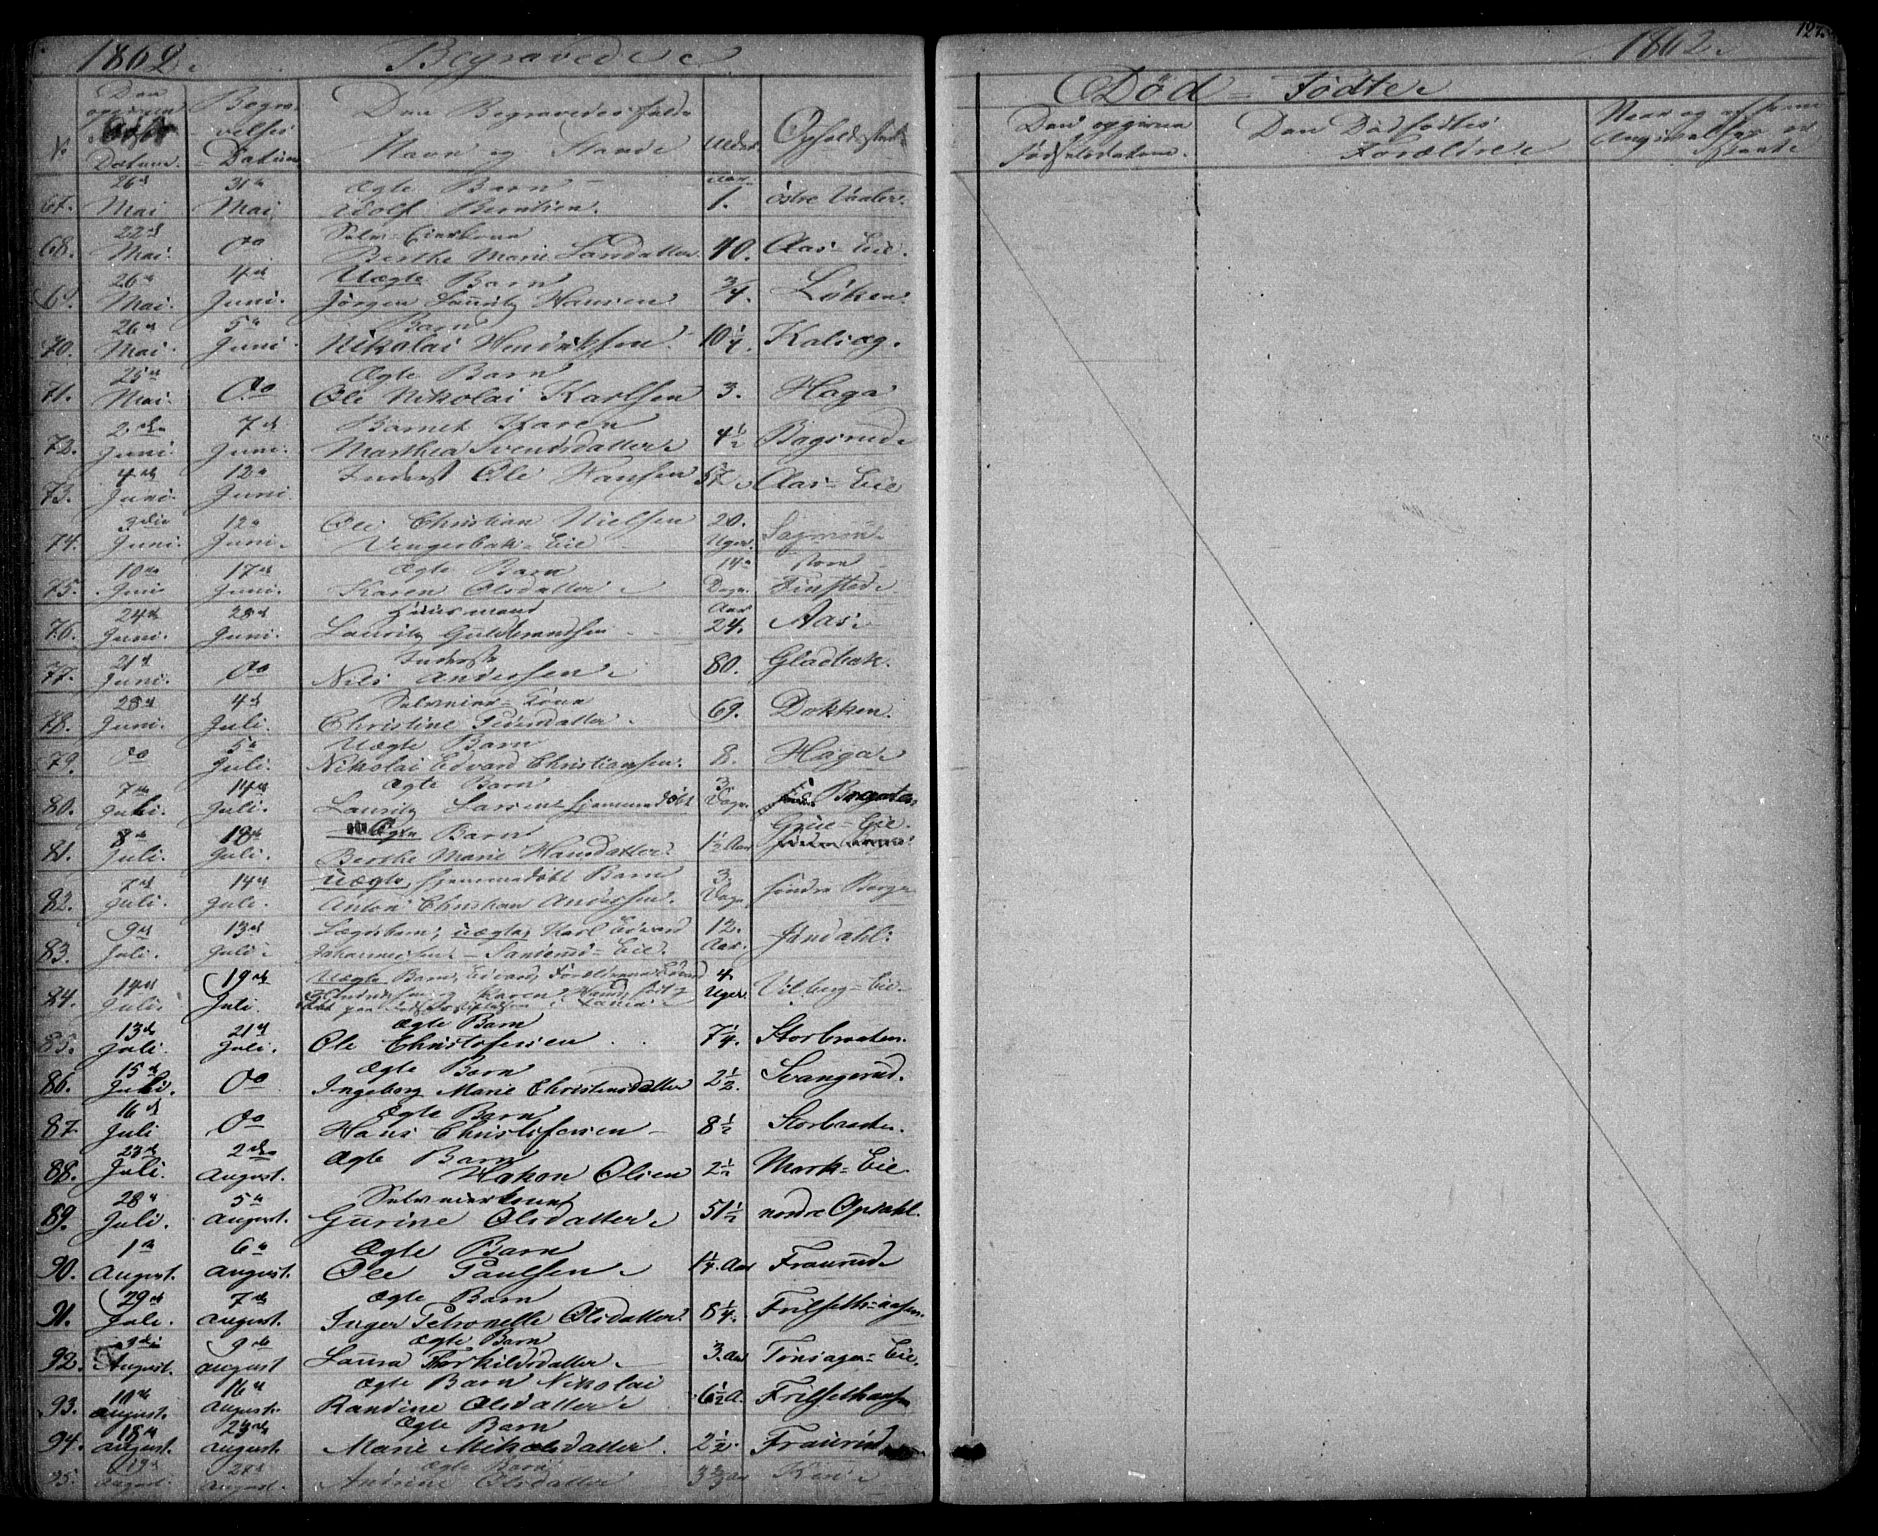 1862. Begravede
No Den opgivne Døds Datum. Begravelses Datum Den Begravedes fulde Navn og Stand Alder. Opholdssted
67. 26de Mai 31te Mai Ægte Barn Adolf Berntsen. Aar 1. østre Vaaler.
68. 22de Mai. Do Selveierkone Berthe Marie Larsdatter. 40. Aas-Eie.
69. 26de Mai. 4de Juni. Uægte Barn Jørgen Lauritz Hansen. 3/4. Løken.
70. 26de Mai. 5te Juni. Barn Nikolai Hendriksen. 10 1/4. Kalsæg.
71. 25de Mai. Do Ægte Barn Ole Nikolai Karlsen 3. Haga
72. 2den Juni. 7de Juni. Barnet Karen Marthea Svendsdatter. 4 1/2 Bagsrud.
73. 4de Juni. 12te Juni. Inderst Ole Hansen 57. Aas-Eie
74. 9die Juni. 12te Juni. Ole Christian Nielsen Vengerbak-Eie 20. Uger.
75. 10de Juni 17de Juni. Ægte Barn Karen Olsdatter. 14. Dage. store Finstad.
76. 24de Juni. 28de Juni. Huusmand Lauritz Guldbrandsen. Aar 24. Aas.
77. 21de Juni. Do Inderst Nils Andersen. 80. Gladbak.
78. 28de Juni. 4de Juli. Selveier-Kone Christine Pedersdatter. 69. Dokken.
79. Do 5te Juli. Uægte Barn Nikolai Edvard Christiansen. 8. Haga.
80. 7de Juli. 14de Juli. Ægte Barn Lauritz Larsen hjemmedøbt 3. Dage.
81. 8de Juli. Juli. Ægte Barn Berthe Marie Hansdatter. 1 1/2 Aar Grue-Eie.
82. 7de Juli. 14de Juli. Uægte, hjemmedøbt Barn Anton Christian Andersen. 3. Dage. søndre Berge
83. 9de Juli. 13de Juli. Lægdsbarn, uægte, Karl Edvard Johannessen - Eie. 12. Aar.
84. 14de Juli. 19de Juli. Uægte Barn, Edvard, Forældrene Edvard og Karen 4. Uger. Vilberg-Eie.
85. 13de Juli. 21de Juli. Ægte Barn Ole Christofersen. 7 1/4. Storbraaten.
86. 15de Juli. Do Ægte Barn Ingeborg Marie Christensdatter 2 1/2. Svangerud.
87. 16de Juli Do Ægte Barn Hans Christofersen 8 1/2 Storbraaten.
88. 23de Juli. 2den August. Ægte Barn Hakon Olsen 2 1/2 Mork-Eie
89. 28de Juli. 5te August. Selveierkone Gurine Olsdatter. 51 1/2 nordre Opdahl.
90. 1ste August. 6te August. Ægte Barn Ole Paulsen. 1 1/4. Aar Fraurud.
91. 29de Juli. 7de August. Ægte Barn Inger Petronelle Olsdatter. 8 1/4. Frilseth-aasen.
92. 3die August. 9de August Ægte Barn Laura Thorkildsdatter. 3. Aar Tønsager-Eie.
93. 10de August. 16de August. Ægte Barn Nikolai Randine Olsdatter. 6 1/2 A. Frilsethaasen
94. 18de August. 23de August. Ægte Barn Marie Mikalsdatter. 2 1/2. Fraurud
95. 19de August. 27de August. Ægte Barn Andrine Olsdatter 3 Aar
127.
1862.
Død-Fødte.
Den opgivne Fødselsdatum. Den Dødfødtes Forældre. Naar og af hvem Anmeldelse er